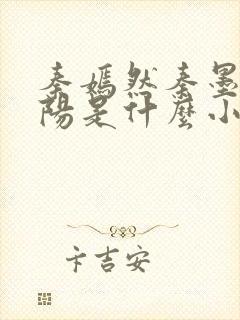 秦嫣然秦墨
陽是什麼小
卡吉安